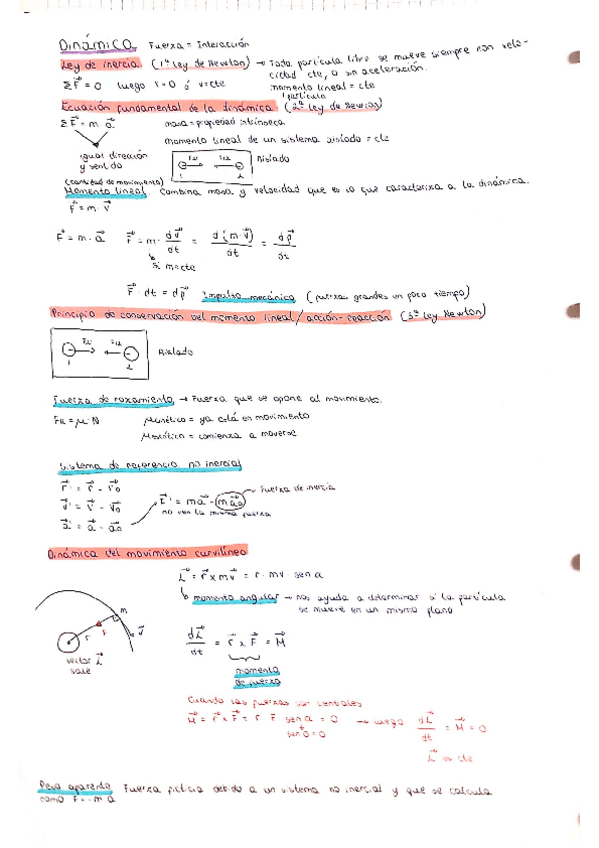 DINÁMICA Fuerza = Interacción
Ley de inercia (1ª ley de Newton) → Toda partícula libre se mueve siempre con velo-
cidad cte, o sin aceleración.
ΣF⃗ = 0 luego v = 0 ó v = cte momento lineal = cte
partícula
Ecuación fundamental de la dinámica (2ª ley de Newton)
ΣF⃗ = m a⃗ masa = propiedad intrínseca
momento lineal de un sistema aislado = cte
igual dirección
y sentido
Aislado
1 2
(cantidad de movimiento)
Momento lineal Combina masa y velocidad que es lo que caracteriza a la dinámica.
p⃗ = m · v⃗
F⃗ = m · a⃗ F⃗ = m · dv⃗/dt = d(m·v⃗)/dt = dp⃗/dt
Si m = cte
F⃗ · dt = dp⃗ Impulso mecánico (fuerzas grandes en poco tiempo)
Principio de conservación del momento lineal / acción-reacción (3ª ley Newton)
Aislado
1 2
Fuerza de rozamiento → Fuerza que se opone al movimiento.
FR = μ · N μcinético = ya está en movimiento
μestático = comienza a moverse
Sistema de referencia no inercial
r⃗' = r⃗ - r⃗0
v⃗' = v⃗ - v⃗0
a⃗' = a⃗ - a⃗0
F⃗' = ma⃗ - ma⃗0 → Fuerza de inercia
no ven la misma fuerza
Dinámica del movimiento curvilíneo
L⃗ = r⃗ x mv⃗ = r · mv · sen α
momento angular → nos ayuda a determinar si la partícula
se mueve en un mismo plano
m
r F v⃗
vector L⃗
sale
dL⃗/dt = r⃗ x F⃗ = M⃗
momento
de fuerza
Cuando las fuerzas son centrales
M⃗ = r⃗ x F⃗ = r F sen α = 0 → luego dL⃗/dt = M⃗ = 0
sen 0 = 0
L⃗ es cte
Peso aparente Fuerza ficticia debido a un sistema no inercial y que se calcula
como F = -m a